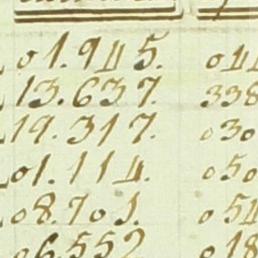 01.945. 
13.637. 338
19.317. 030
01.114. 050
08.701. 054
06.552. 018